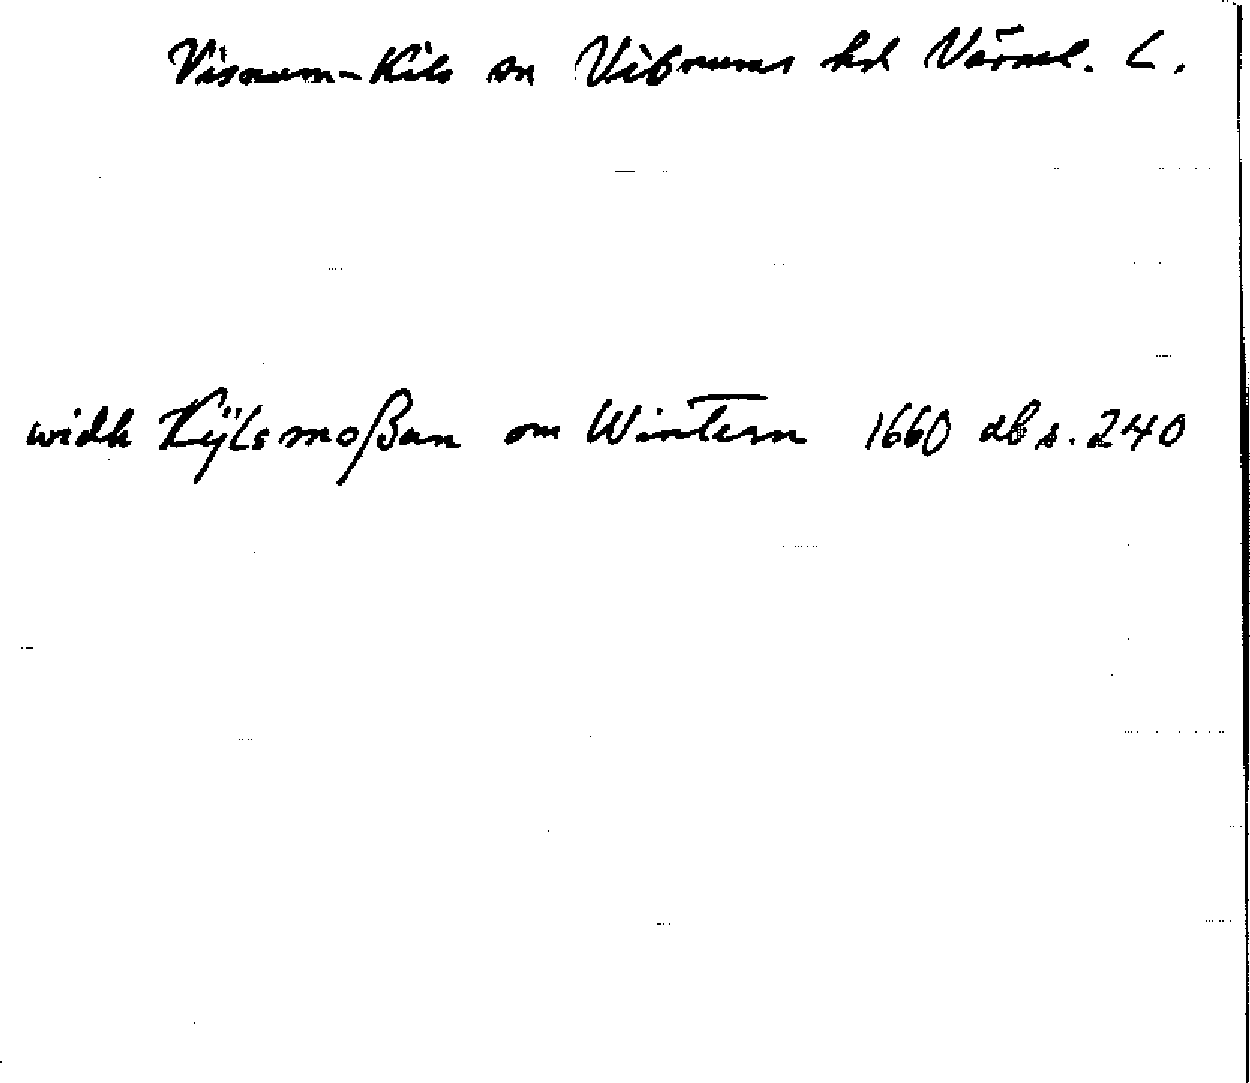 Visnum-Kils sn Visnums hd Värml. L.
widh Kÿlsmoßan om Wintern 1660 db s. 240